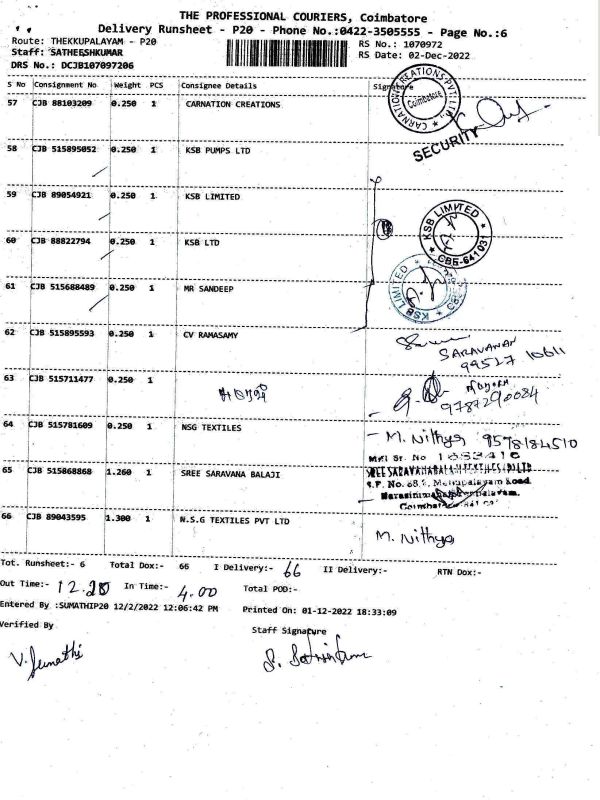 THE PROFESSIONAL COURIERS, Coimbatore
Delivery Runsheet - P20 - Phone No.:0422-3505555 - Page No.:6
Route: THEKKUPALAYAM - P20
RS No.: 1070972
Staff: SATHEESHKUMAR
RS Date: 02-Dec-2022
DRS No.: DCJB107097206
S No Consignment No Weight PCS Consignee Details Signature
57 CJB 88103209 0.250 1 CARNATION CREATIONS
CARNATION CREATIONS PVT LTD.,
Coimbatore
SECURITY
58 CJB 515895052 0.250 1 KSB PUMPS LTD
59 CJB 89054921 0.250 1 KSB LIMITED
KSB LIMITED
CBE-641031
60 CJB 88822794 0.250 1 KSB LTD
61 CJB 515688489 0.250 1 MR SANDEEP
KSB LIMITED
62 CJB 515895593 0.250 1 CV RAMASAMY
SARAVANAN
99527 10611
63 CJB 515711477 0.250 1
9787290084
64 CJB 515781609 0.250 1 NSG TEXTILES
- M. Nithya 9578184510
65 CJB 515868868 1.260 1 SREE SARAVANA BALAJI
S.F. No. 68 Mettupalayam Road
66 CJB 89043595 1.300 1 N.S.G TEXTILES PVT LTD
M. Nithya
Tot. Runsheet:- 6 Total Dox:- 66 I Delivery:- 66 II Delivery:- RTN Dox:-
Out Time:- 12.20 In Time:- 4.00 Total POD:-
Entered By :SUMATHIP20 12/2/2022 12:06:42 PM Printed On: 01-12-2022 18:33:09
Verified By
Staff Signature
V. Sumathi